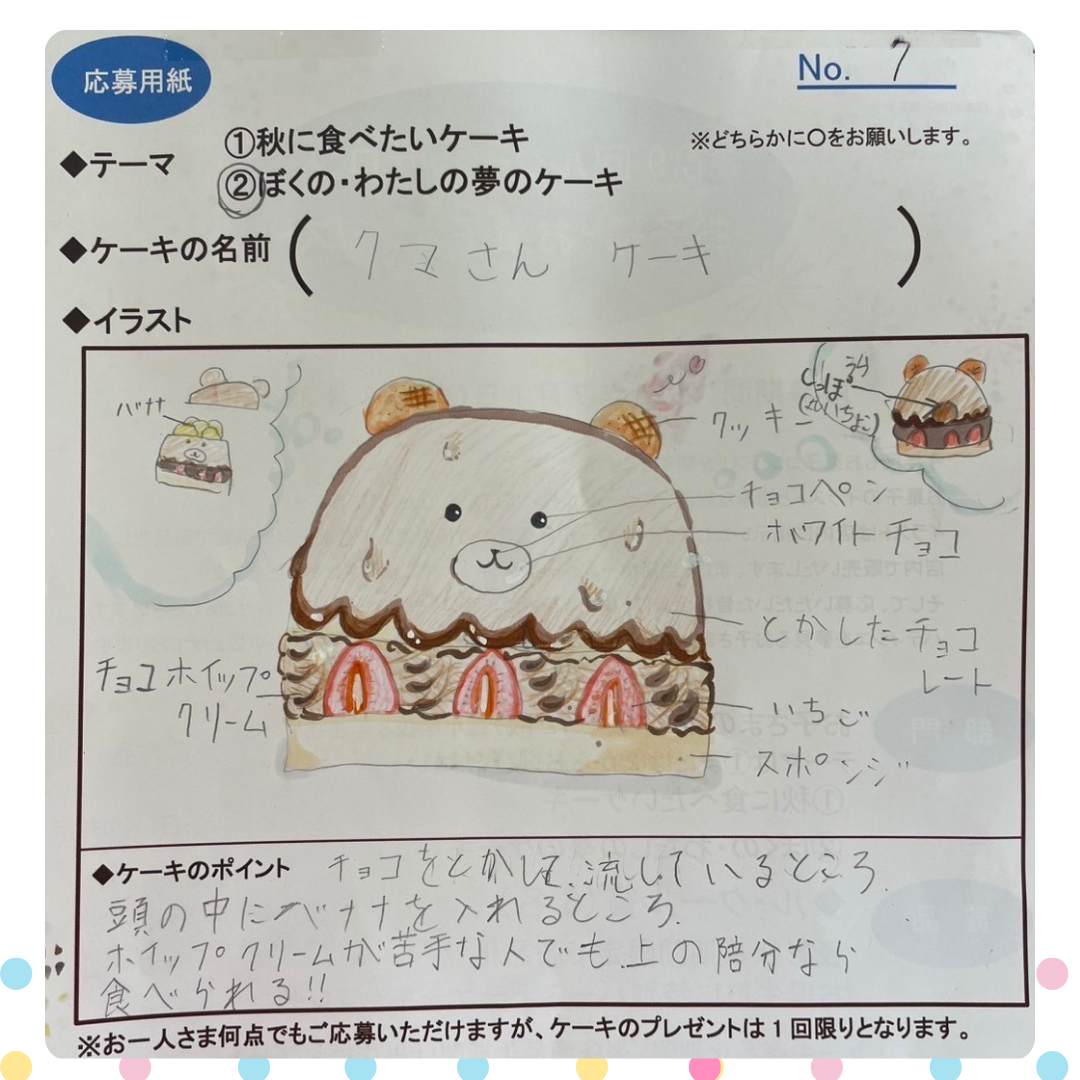 応募用紙
No. 7
◆テーマ
①秋に食べたいケーキ
※どちらかに○をお願いします。
②ぼくの・わたしの夢のケーキ
◆ケーキの名前 (クマさん ケーキ)
◆イラスト
バナナ
うしろ
しっぽ
クッキー
チョコペン
ホワイトチョコ
とかしたチョコ
レート
チョコホイップ
クリーム
いちご
スポンジ
◆ケーキのポイント チョコをとかして、流しているところ。
頭の中にバナナを入れるところ。
ホイップクリームが苦手な人でも、上の陪分なら
食べられる!!
※お一人さま何点でもご応募いただけますが、ケーキのプレゼントは1回限りとなります。